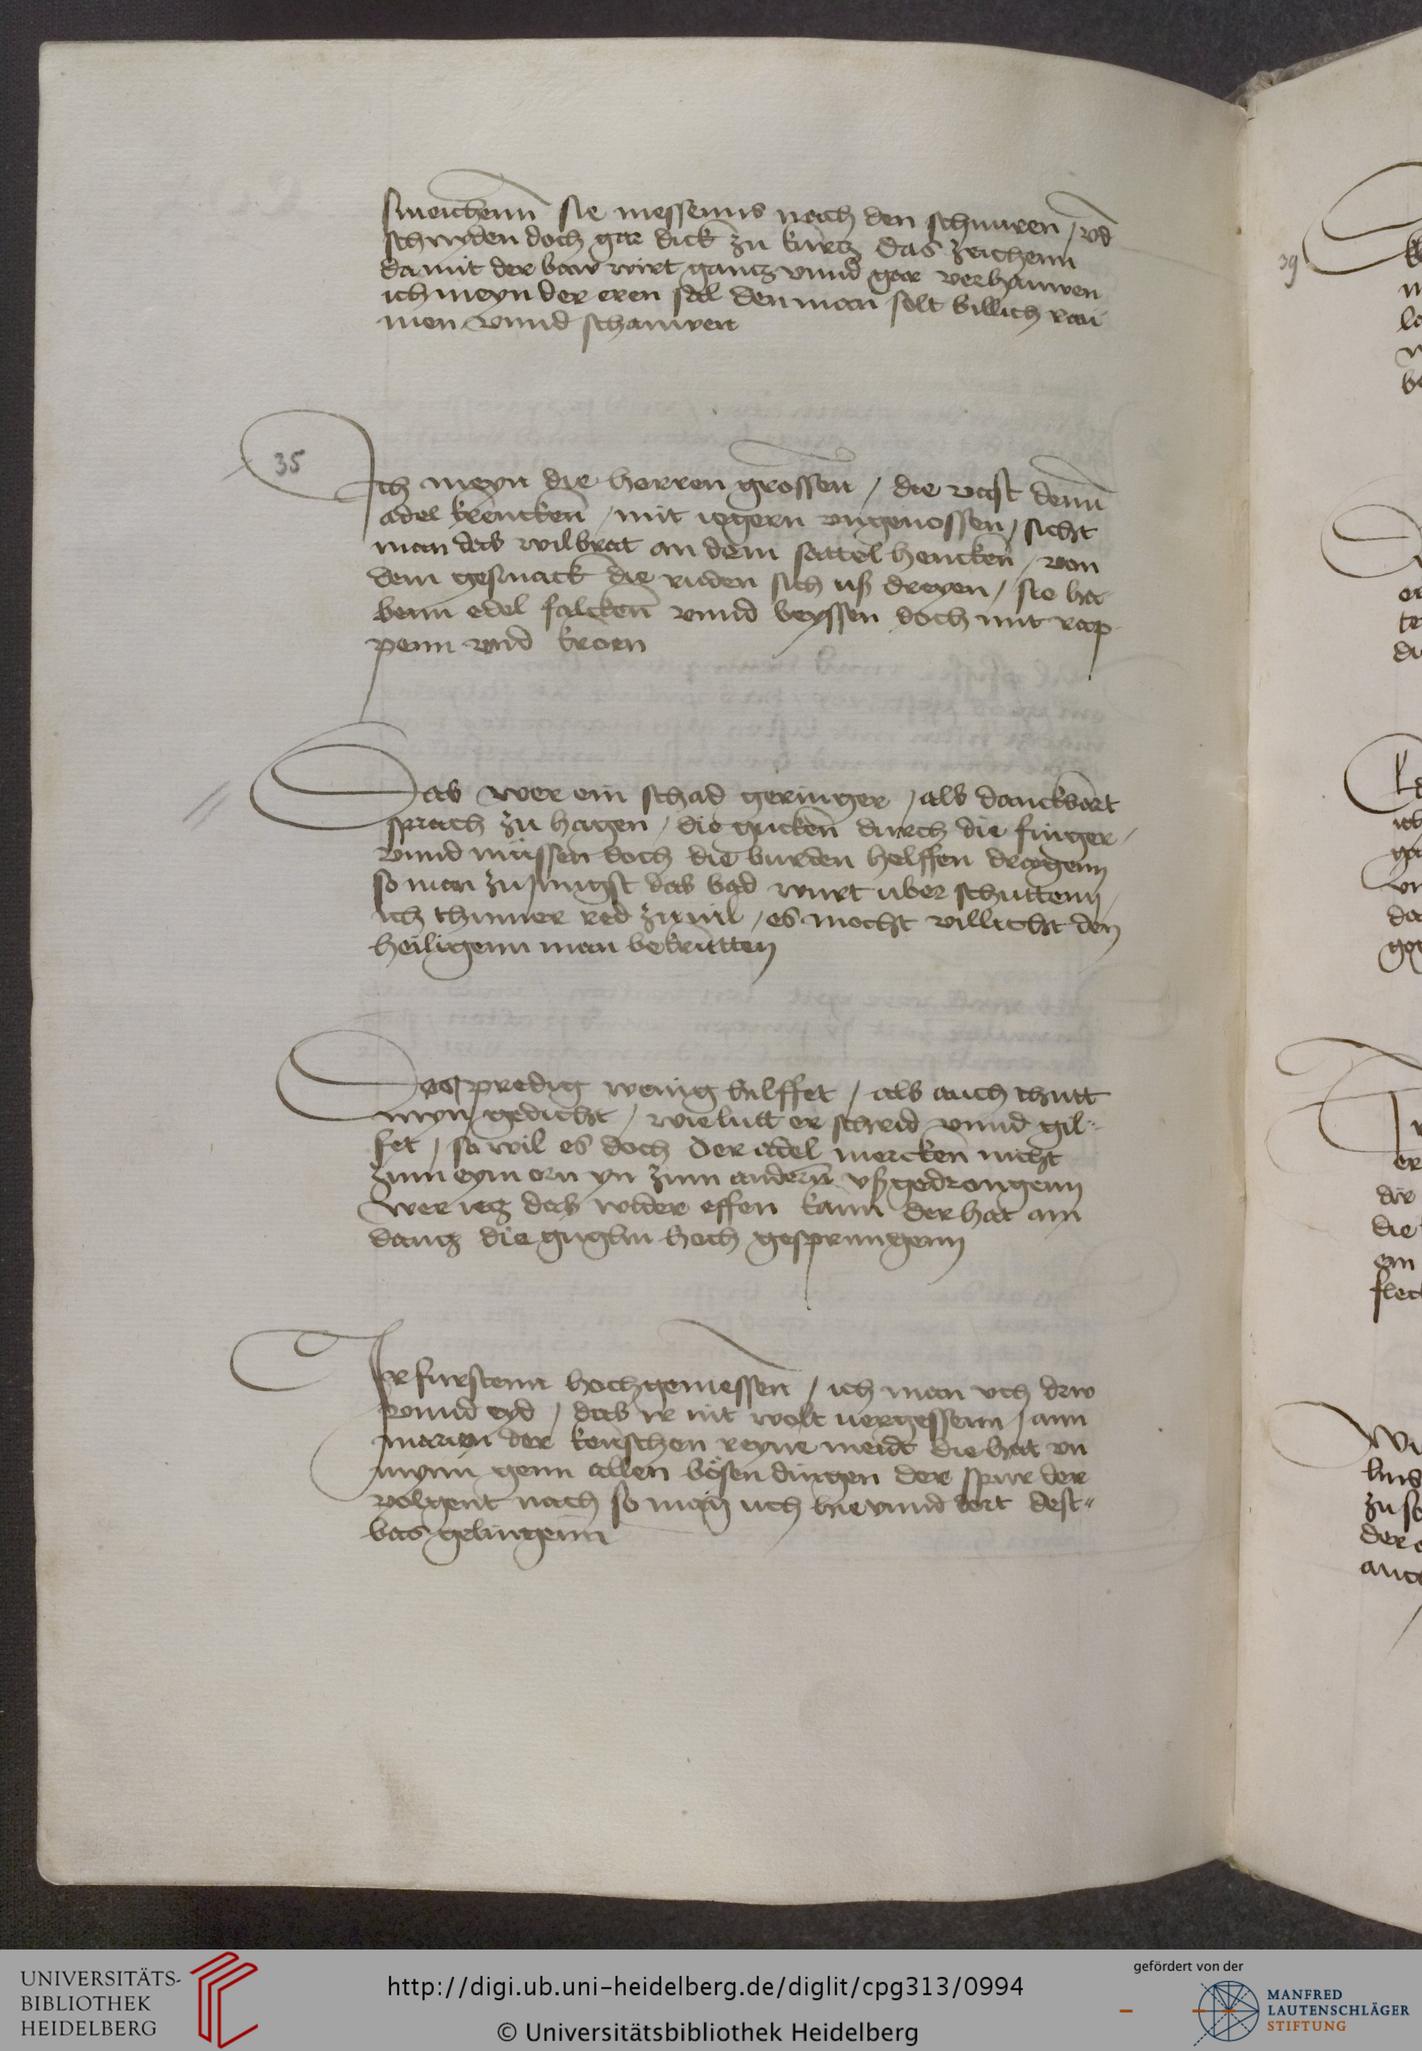 smeichenn sie messenns nach den schnuren / vnd
schnyden doch gar dick zu kurtz das zeichenn
da mit der baw wirt gantz vnnd gar verhauwen
ich meyn der eren sal den man solt billich rau
men vnnd schauwen
35
Ich meyn die herren grossen / die vast denn
adel krencken / mit iegern vngenossen / sicht
man das wilbrat an dem sattel hencken / von
dem gesmack die ruden sich uß dreyen / sie ha
benn edel falcken vnnd beyssen doch mit rap
penn vnd kroen
Das wer ein schad geringer / als danckbart
sprach zu hagen / die gucken durch die finger /
vnnd müssen doch die burden helffen dragenn
so man zu jungst das bad wurt uber schuttenn /
ich thummer red zuuil / es mocht villicht den
heiligenn man bekrutten
Das predig wenig hilffet / als auch thutt
myn gedicht / wie lutt er schrid vnnd gil"
fet / so wil es doch der adel mercken nicht
zum eym orn yn zum andern vßgedrongenn
wer ietz das wider effen kann der hat am
dantz die guglun hoch gesprungenn
Ir furstenn hochgemessen / ich man vch drw
vnnd eyd / das ir nit wolt uergessenn / ann
marien der keuschen reyne meidt die hat vn
mynn genn allen bösen dingen der spur der
volgent nach so mag uch hie vnnd dort dest"
bas gelingenn
39
UNIVERSITÄTS-
BIBLIOTHEK
HEIDELBERG
http://digi.ub.uni-heidelberg.de/diglit/cpg313/0994
© Universitätsbibliothek Heidelberg
gefördert von der
MANFRED
LAUTENSCHLÄGER
STIFTUNG